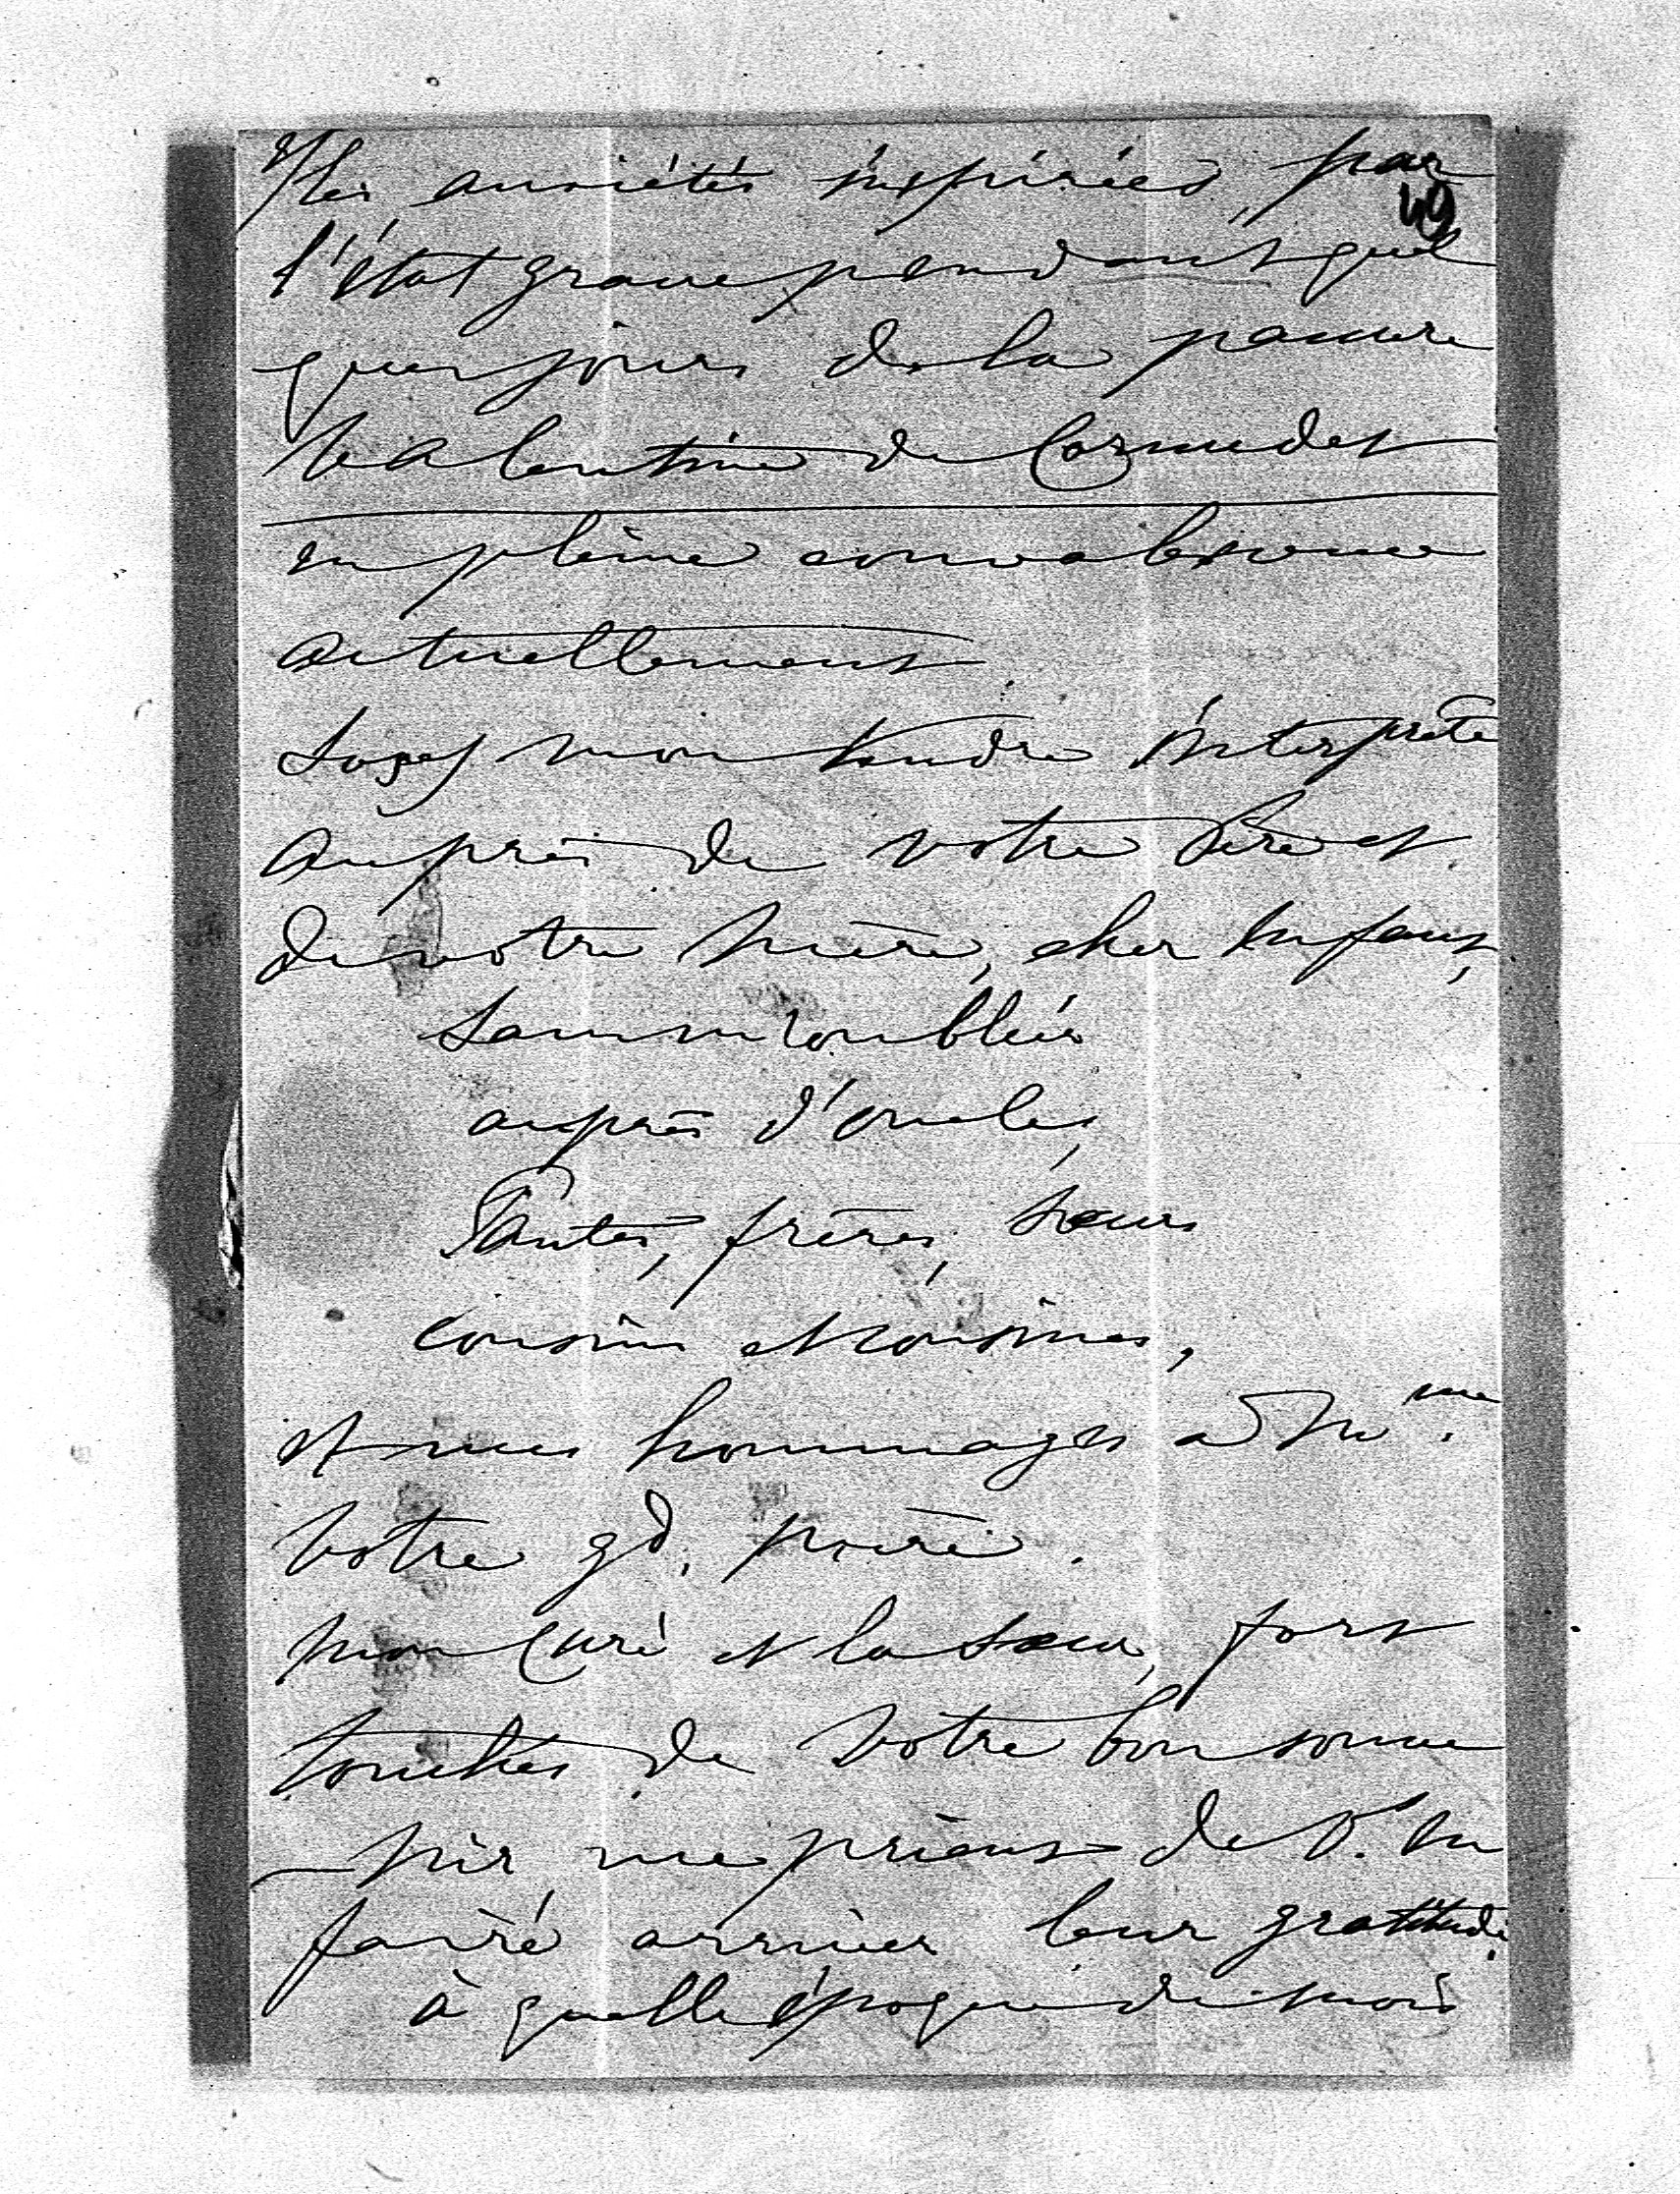 les anxiétés inspirées par
49
l'état grave pendant quel
ques jours de la pauvre
Valentine de Cornudet
en pleine convalescence
actuellement
Soyez mon tendre interprète
auprès de votre Père et
de votre Mère, cher Enfant,
sans m'oublier
auprès d'oncles,
Tantes, frères, sœurs
cousins et cousines,
et mes hommages à Mme.
Votre gd. mère.
Mon Curé et la Sœur, fort
touchés de Votre bon souve
nir, me prient de V. en
faire arriver leur gratitude.
à quelle époque du mois